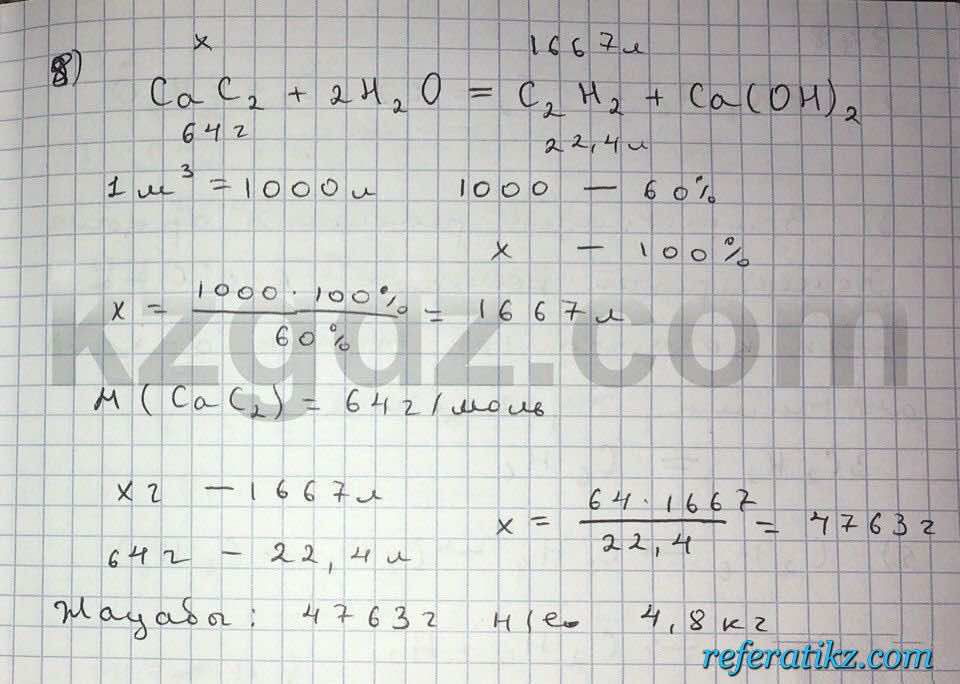 8)
x 1667л
CaC₂ + 2H₂O = C₂H₂ + Ca(OH)₂
64г 22,4л
1м³ = 1000л 1000 — 60%
x — 100%
x = (1000 · 100%) / 60% = 1667л
M(CaC₂) = 64г/моль
xг — 1667л
64г — 22,4л
x = (64 · 1667) / 22,4 = 4763г
Жауабы: 4763г н/е 4,8кг
kzgdz.com
referatikz.com